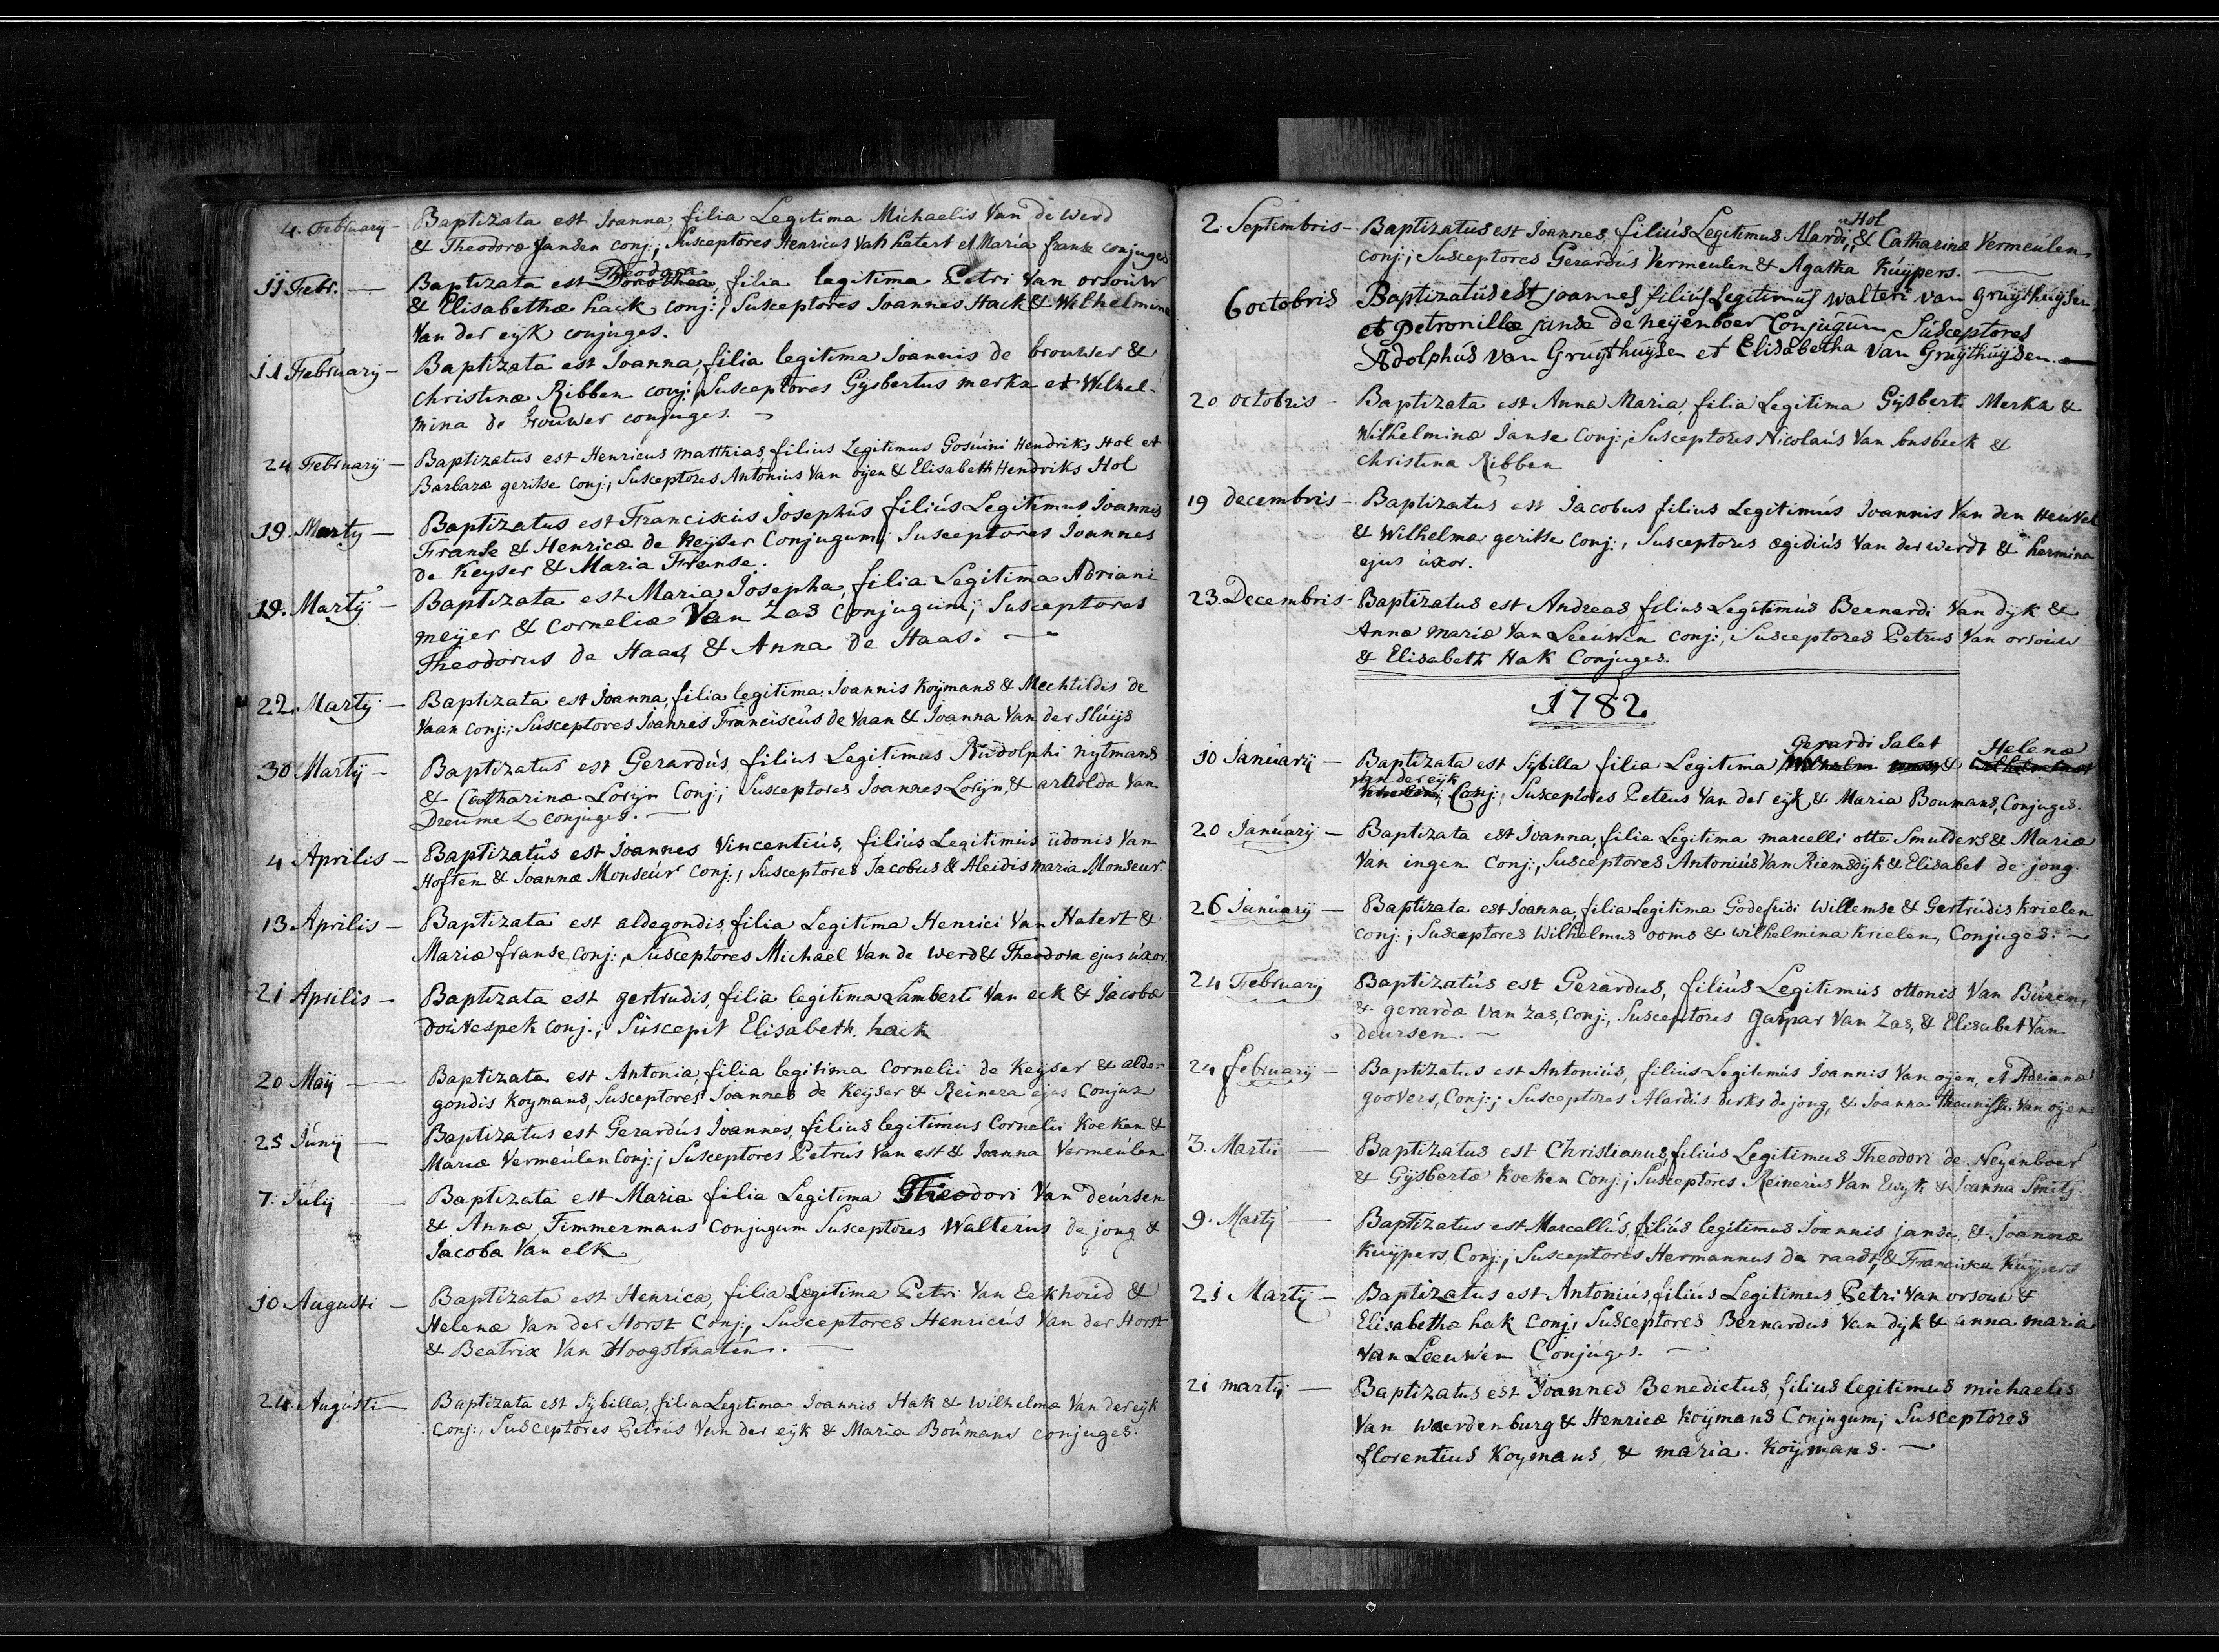 4. February - Baptizata est Joanna, filia Legitima Michaelis Van de Werd
& Theodoræ Jansen conj:, Susceptores Henricus Van hatert et Maria franse conjuges
11 Febr. - Baptizata est Theodora Dorothea, filia legitima Petri Van orsouw
& Elisabethæ hack conj:, Susceptores Joannes Hack & Wilhelmina
Van der eyk conjuges.
11 February - Baptizata est Joanna, filia legitima Joannis de brouwer &
christinæ Ribben conj: Susceptores Gysbertus merkx et Wilhel-
mina de brouwer conjuges.
24 February - Baptizatus est Henricus matthias, filius Legitimus Gosuini Hendriks Hol et
Barbaræ geritse conj:, Susceptores Antonius Van oijen & Elisabeth Hendriks Hol
19. Marty - Baptizatus est Franciscus Josephus filius Legitimus Joannis
Franse & Henricæ de Keyser Conjugum; Susceptores Joannes
de Keyser & Maria Franse.
19. Marty - Baptizata est Maria Josepha, filia Legitima Adriani
meijer & corneliæ Van Zas Conjugum; Susceptores
Theodorus de Haas & Anna de Haas.
22. Marty - Baptizata est Joanna, filia legitima Joannis Koymans & Mechtildis de
Vaan conj:; Susceptores Joannes Franciscus de Vaan & Joanna Van der Sluijs
30 Marty - Baptizatus est Gerardus, filius Legitimus Rudolphi nytmans
& Catharinæ Loryn Conj:; Susceptores Joannes Loryn, & arnolda Van
Dreumel conjuges.
4 Aprilis - Baptizatus est Joannes Vincentius, filius Legitimus udonis Van
Hoften & Joannæ Monseur conj:, Susceptores Jacobus & Aleidis maria Monseur.
13 Aprilis - Baptizata est aldegondis, filia Legitima Henrici Van Hatert &
Mariæ franse, conj:, Susceptores Michael Van de Werd & Theodora ejus uxor.
21 Aprilis - Baptizata est gertrudis, filia legitima Lamberti Van eck & Jacobæ
douvespek conj:; Suscepit Elisabeth hack
20 Maij - Baptizata est Antonia, filia legitima Cornelii de Keyser & alde-
gondis Koymans, Susceptores Joannes de Keijser & Reinera ejus Conjux
25 Junij - Baptizatus est Gerardus Joannes, filius legitimus Cornelii Koeken &
Mariæ Vermeulen Conj:; Susceptores Petrus Van est & Joanna Vermeulen
7. July - Baptizata est Maria filia Legitima Theodori Van deursen
& Annæ Timmermans Conjugum Susceptores Walterus de jong &
Jacoba Van elk
10 Augusti - Baptizata est Henrica, filia Legitima Petri Van Eekhoud &
Helenæ Van der Horst Conj:, Susceptores Henricus Van der Horst
& Beatrix Van Hoogstraaten.
24. Augusti - Baptizata est Sybilla, filia Legitima Joannis Hak & Wilhelmæ Van der eijk
Conj:, Susceptores Petrus Van der eyk & Maria Boumans conjuges.
2. Septembris - Baptizatus est Joannes, filius Legitimus Alardi Hol & Catharinæ Vermeulen
conj:, Susceptores Gerardus Vermeulen & Agatha Kuypers.
6 octobris Baptizatus est joannes filius Legitimus walteri van Gruythuysen
et Petronillæ janse de heyenboer Conjugum Susceptores
Adolphus van Gruythuysen et Elisabetha van Gruythuysen.
20 octobris - Baptizata est Anna Maria, filia Legitima Gysberti Merkx &
Wilhelminæ Janse Conj:, Susceptores Nicolaus Van sonsbeek &
christina Ribben
19 decembris - Baptizatus est Jacobus filius Legitimus Joannis Van den Heuvel
& Wilhelmæ geritse Conj:, Susceptores ægidius Van der werdt & hermina
ejus uxor.
23. Decembris - Baptizatus est Andreas filius Legitimus Bernardi Van dyk &
Annæ mariæ Van Leeuwen conj:, Susceptores Petrus Van orsouw
& Elisabeth Hak Conjuges.
1782
10 January - Baptizata est Sybilla filia Legitima Gerardi Salet & Helenæ
van der eyk Conj:, Susceptores Petrus Van der eyk & Maria Boumans, Conjuges.
20 January - Baptizata est Joanna, filia Legitima marcelli otte Smulders & Mariæ
Van ingen Conj:, Susceptores Antonius Van Riemsdyk & Elisabet de jong.
26 January - Baptizata est Joanna, filia Legitima Godefridi Willemse & Gertrudis Krielen
conj:, Susceptores Wilhelmus ooms & wilhelmina Krielen, Conjuges.
24 February Baptizatus est Gerardus, filius Legitimus ottonis Van Buren
& gerardæ Van Zas, Conj:, Susceptores Gaspar Van Zas, & Elisabet Van
deursen.
24 february - Baptizatus est Antonius, filius Legitimus Joannis Van oijen, et Adrianæ
goovers, Conj:; Susceptores Alardus dirks de jong, & Joanna theunisse Van oijen
3. Martii - Baptizatus est Christianus, filius Legitimus Theodori de Neyenboer
& Gysbertæ Koeken Conj:; Susceptores Reinerus Van Ewyk & Joanna Smits.
9. Marty - Baptizatus est Marcellus, filius legitimus Joannis janse, & Joannæ
Kuypers, Conj:, Susceptores Hermannus de raadt, & Francisca Kuypers
21 Marty - Baptizatus est Antonius, filius Legitimus Petri Van orsouw &
Elisabethæ hak Conj: Susceptores Bernardus Van dijk & anna maria
Van Leeuwen Conjuges.
21 marty - Baptizatus est Joannes Benedictus, filius legitimus michaelis
Van Waerdenburg & Henricæ Koymans Conjugum; Susceptores
florentius Koymans, & maria Koymans.